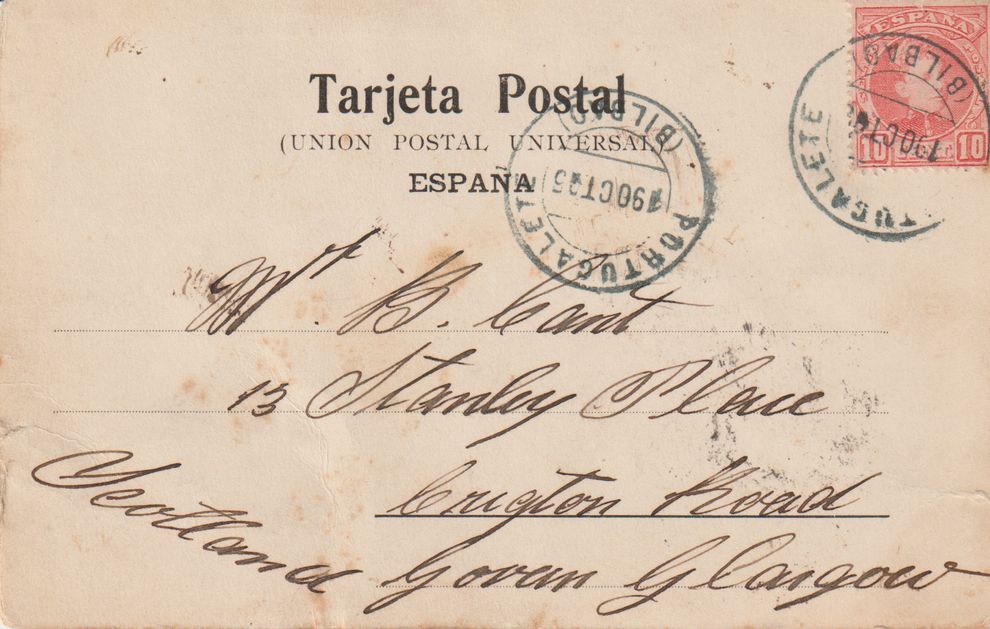 Tarjeta Postal
(UNION POSTAL UNIVERSAL)
ESPAÑA
ESPAÑA
10 10
PORTUGALETE
(BILBAO)
19 OCT 05
TUGALETE
(BILBAO)
19 OCT
Mr. B. Cant
13 Stanley Place
Crigton Road
Govan Glasgow
Scotland